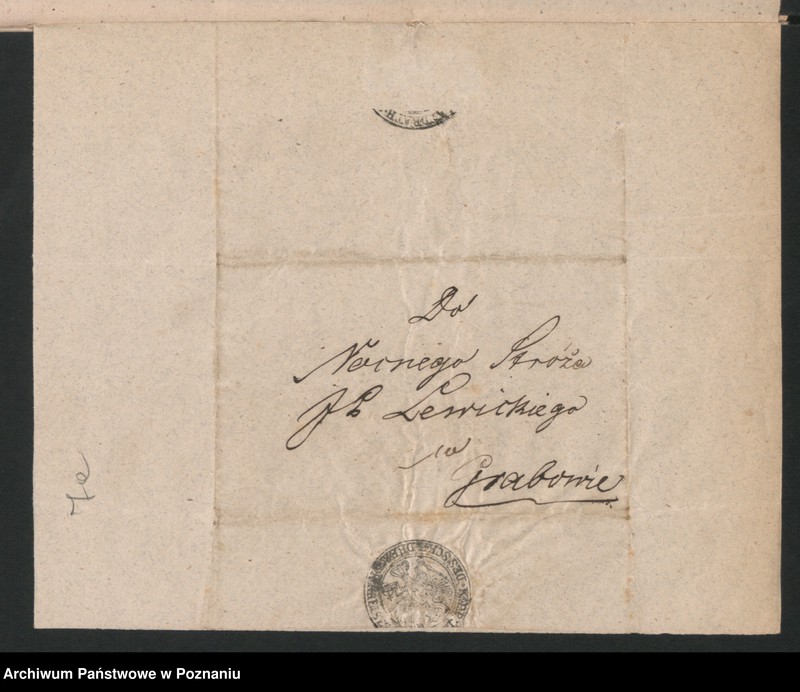 Do
Nocnego Stróża
JP Lewickiego
w
Grabowie
7a
Archiwum Państwowe w Poznaniu